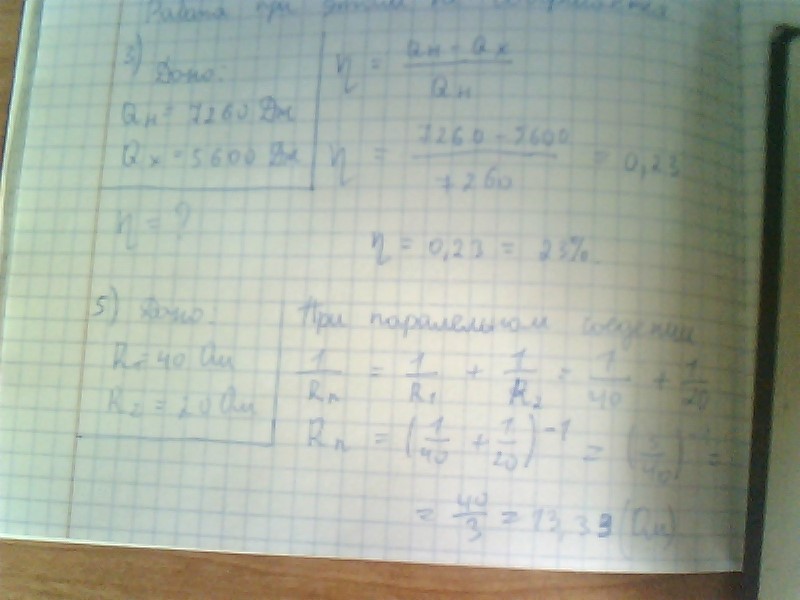 Работа при этом не совершается
3) Дано:
Qн = 7260 Дж
Qх = 5600 Дж
η = ?
η = (Qн - Qх) / Qн
η = (7260 - 5600) / 7260 = 0,23
η = 0,23 = 23%
5) Дано:
R = 40 Ом
R2 = 20 Ом
При паралельном
1/Rп = 1/R1 + 1/R2 = 1/40 + 1/20
Rп = (1/40 + 1/20)^-1 = (3/40)^-1 =
= 40/3 = 13,33 (Ом)